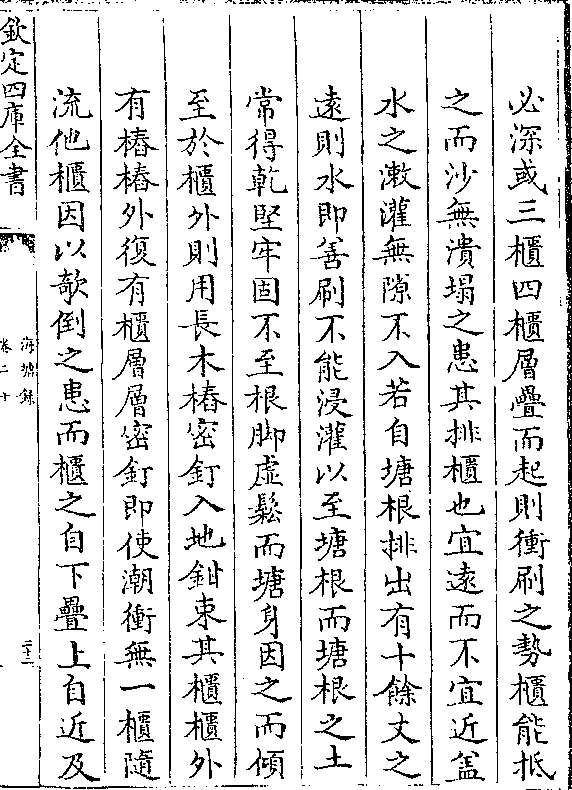 必深或三櫃四櫃層疊而起則衝刷之勢櫃能抵
之而沙無潰塌之患其排櫃也宜遠而不宜近盖
水之漱灌無隙不入若自塘根排出有十餘丈之
遠則水即善刷不能浸灌以至塘根而塘根之土
常得乾堅牢固不至根脚虛鬆而塘身因之而傾
至於櫃外則用長木樁密釘入地鉗束其櫃櫃外
有樁樁外復有櫃層層密釘即使潮衝無一櫃隨
流他櫃因以欹倒之患而櫃之自下疊上自近及
欽定四庫全書
海塘録
卷二十
二十三